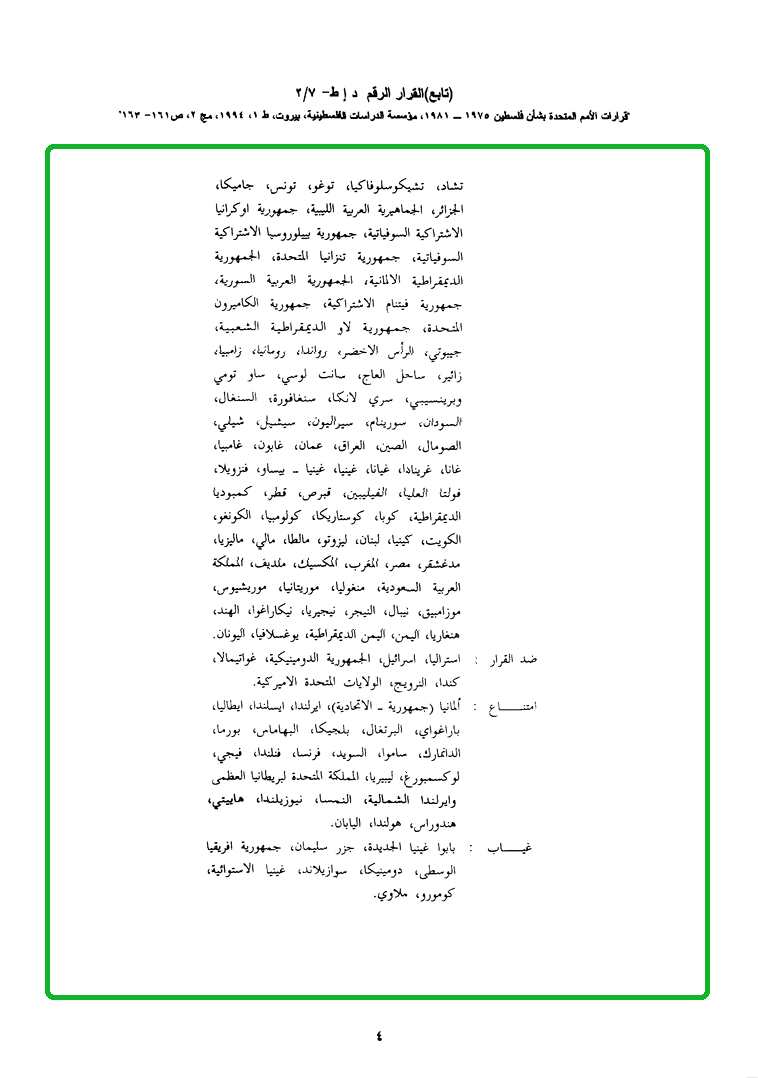 (تابع)القرار الرقم د إ ط- ٢/٧
"قرارات الأمم المتحدة بشأن فلسطين ١٩٧٥ ــ ١٩٨١، مؤسسة الدراسات الفلسطينية، بيروت، ط ١، ١٩٩٤، مج ٢، ص١٦١- ١٦٣"
تشاد، تشيكوسلوفاكيا، توغو، تونس، جاميكا،
الجزائر، الجماهيرية العربية الليبية، جمهورية اوكرانيا
الاشتراكية السوفياتية، جمهورية بييلوروسيا الاشتراكية
السوفياتية، جمهورية تنزانيا المتحدة، الجمهورية
الديمقراطية الالمانية، الجمهورية العربية السورية،
جمهورية فيتنام الاشتراكية، جمهورية الكاميرون
المتحدة، جمهورية لاو الديمقراطية الشعبية،
جيبوتي، الرأس الاخضر، رواندا، رومانيا، زامبيا،
زائير، ساحل العاج، سانت لوسي، ساو تومي
وبرينسيبي، سري لانكا، سنغافورة، السنغال،
السودان، سورينام، سيراليون، سيشيل، شيلي،
الصومال، الصين، العراق، عمان، غابون، غامبيا،
غانا، غرينادا، غيانا، غينيا، غينيا ــ بيساو، فنزويلا،
فولتا العليا، الفيليبين، قبرص، قطر، كمبوديا
الديمقراطية، كوبا، كوستاريكا، كولومبيا، الكونغو،
الكويت، كينيا، لبنان، ليزوتو، مالطا، مالي، ماليزيا،
مدغشقر، مصر، المغرب، المكسيك، ملديف، المملكة
العربية السعودية، منغوليا، موريتانيا، موريشيوس،
موزامبيق، نيبال، النيجر، نيجيريا، نيكاراغوا، الهند،
هنغاريا، اليمن، اليمن الديمقراطية، يوغسلافيا، اليونان.
ضد القرار : استراليا، اسرائيل، الجمهورية الدومينيكية، غواتيمالا،
كندا، النرويج، الولايات المتحدة الاميركية.
امتنـــــاع : ألمانيا (جمهورية ــ الاتحادية)، ايرلندا، ايسلندا، ايطاليا،
باراغواي، البرتغال، بلجيكا، البهاماس، بورما،
الدانمارك، ساموا، السويد، فرنسا، فنلندا، فيجي،
لوكسمبورغ، ليبيريا، المملكة المتحدة لبريطانيا العظمى
وايرلندا الشمالية، النمسا، نيوزيلندا، هاييتي،
هندوراس، هولندا، اليابان.
غيـــــاب : بابوا غينيا الجديدة، جزر سليمان، جمهورية افريقيا
الوسطى، دومينيكا، سوازيلاند، غينيا الاستوائية،
كومورو، ملاوي.
٤